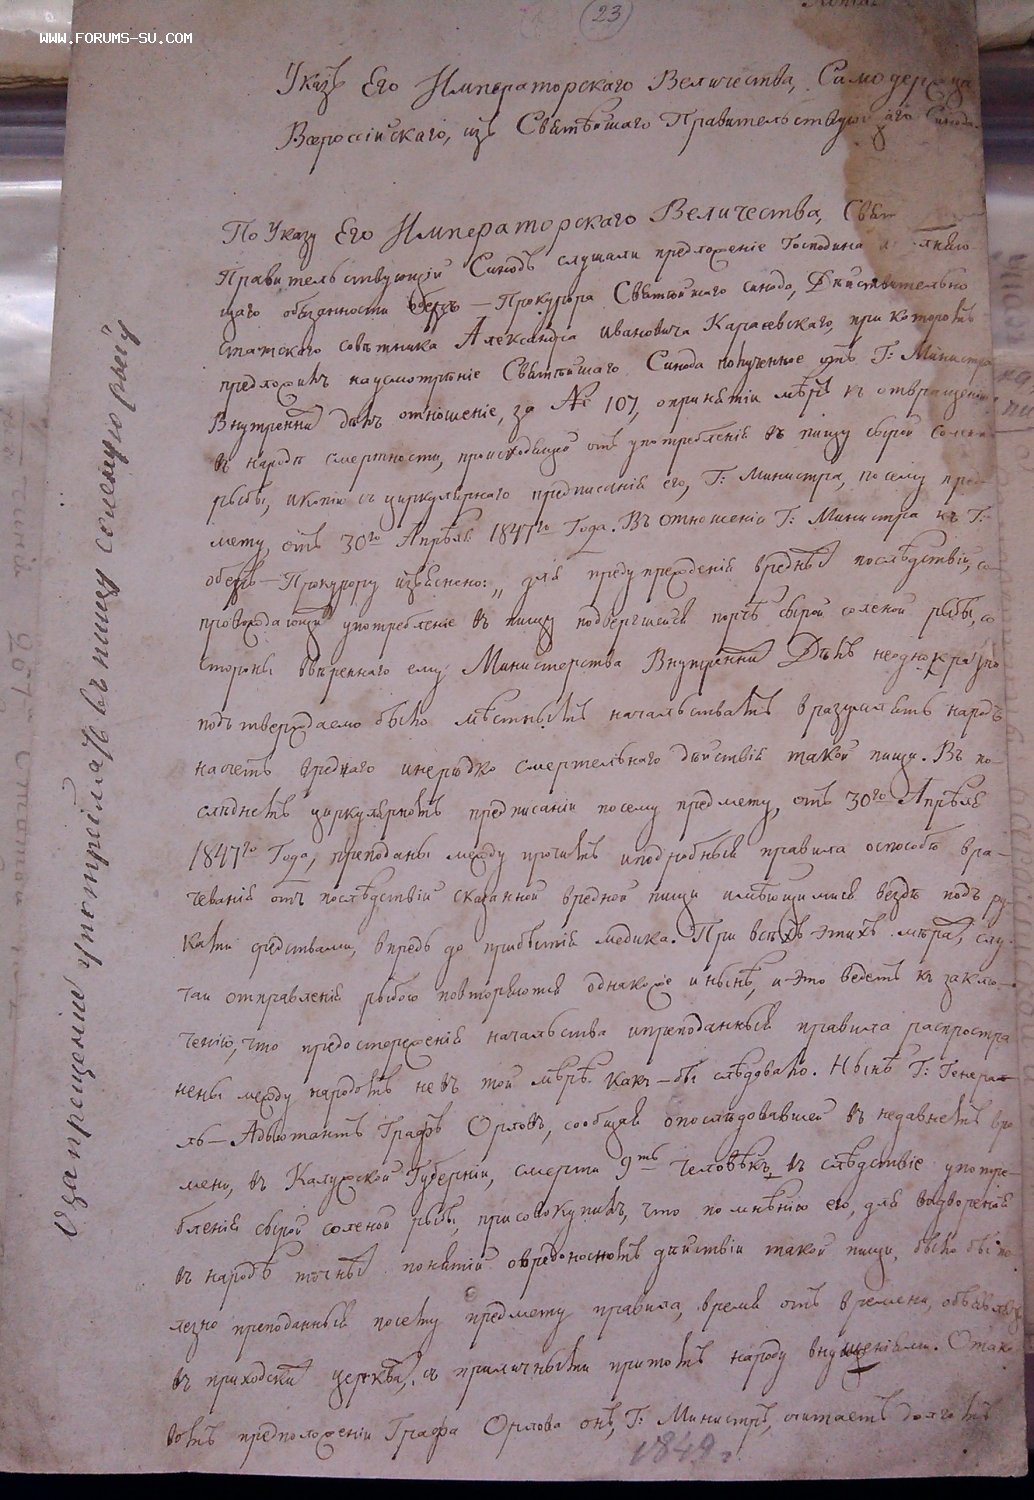 WWW.FORUMS-SU.COM
23
Указъ Его Императорскаго Величества, Самодержца
Всероссійскаго, изъ Святѣйшаго Правительствующаго Синода.
По Указу Его Императорскаго Величества, Свят
Правительствующій Синодъ слушали предложеніе Господина
щаго обязанности Оберъ-Прокурора Святѣйшаго Синода, Дѣйствительно
Статскаго совѣтника Александра Ивановича Карасевскаго, при которомъ
предложилъ на усмотрѣніе Святѣйшаго Синода полученное отъ Г: Министра
Внутреннихъ дѣлъ отношеніе, за № 107, о принятіи мѣръ къ отвращенію
въ народѣ смертности, происходящей отъ употребленія въ пищу сырой солен
рыбы, и копію съ циркулярнаго предписанія его, Г: Министра, по сему пред-
мету, отъ 30го Апрѣля 1847го Года. Въ отношеніи Г: Министра къ Г:
оберъ-Прокурору изъяснено: „для предупрежденія вредныхъ послѣдствій, со-
провождающихъ употребленіе въ пищу подвергшейся порчѣ сырой соленой рыбы, со
стороны ввѣреннаго ему Министерства Внутреннихъ Дѣлъ неоднократно
подтверждаемо было мѣстнымъ начальствамъ вразумлять народъ
насчетъ вреднаго и нерѣдко смертельнаго дѣйствія такой пищи. Въ по-
слѣднемъ циркулярномъ предписаніи по сему предмету, отъ 30го Апрѣля
1847го Года, преподаны между прочимъ и подробныя правила о способѣ вра-
чеванія отъ послѣдствій сказанной вредной пищи имѣющимися вездѣ подъ ру-
ками средствами, впредь до прибытія медика. При всѣхъ этихъ мѣрахъ, слу-
чаи отравленія рыбою повторяются однакоже и нынѣ, и это ведетъ къ заклю-
ченію, что предостереженія начальства и преподанныя правила распростра
нены между народомъ не въ той мѣрѣ какъ-бы слѣдовало. Нынѣ Г: Генера-
лъ-Адъютантъ Графъ Орловъ, сообщая о послѣдовавшей въ недавнемъ вре
мени, въ Калужской Губерніи, смерти 9ть человѣкъ, въ слѣдствіе употре-
бленія сырой соленой рыбы, присовокупилъ, что по мнѣнію его, для водворенія
въ народѣ точныхъ понятій о вредоносномъ дѣйствіи такой пищи, было бы по
лезно преподанныя посему предмету правила, время отъ времени, объявлять
въ приходскихъ церквахъ, съ приличными притомъ народу внушеніями. О тако
вомъ предположеніи Графа Орлова онъ, Г: Министръ, считаетъ долгомъ
1849 г
О запрещеніи употреблять въ пищу соленую рыбу